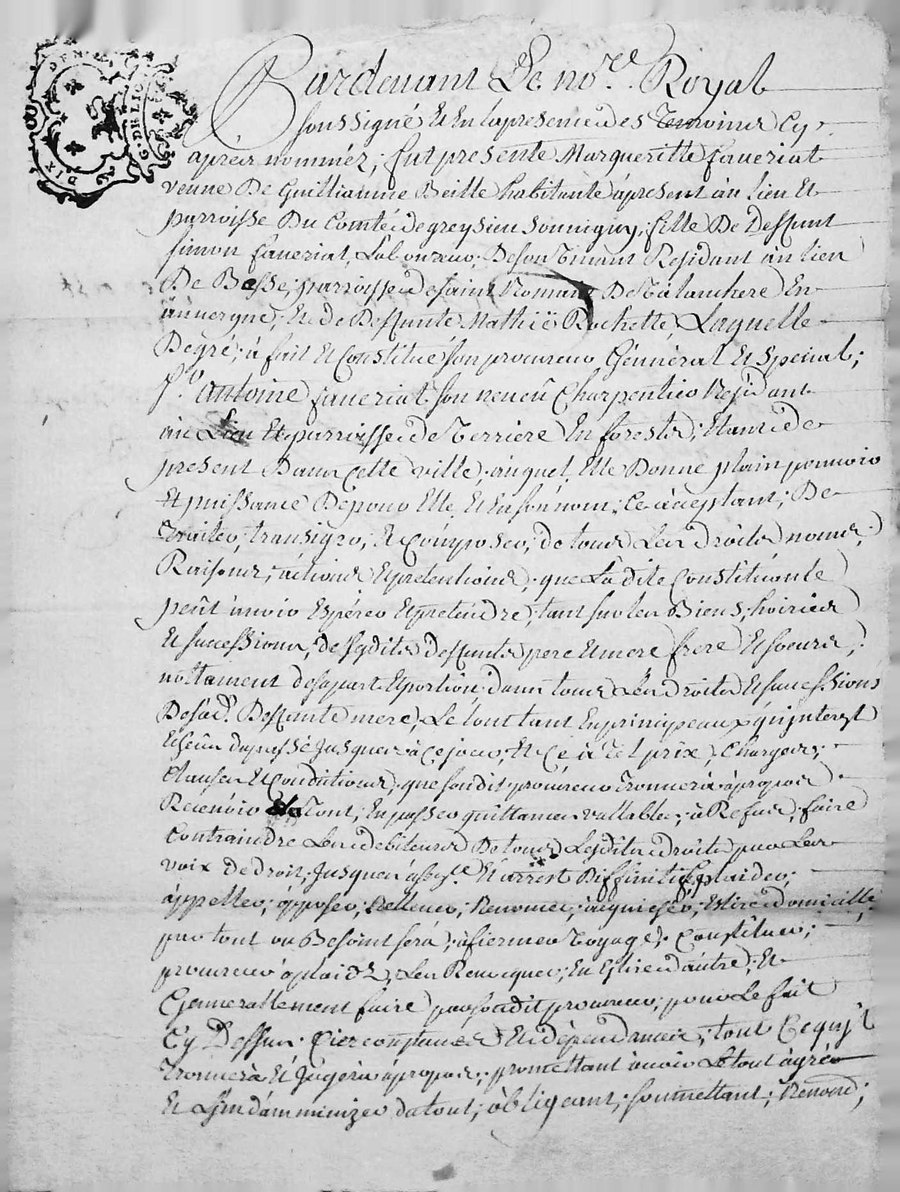 DIX DEN
G. DE LIO
Pardevant Le no.re Royal
soussigné Et En la presence des Temoins Cy
aprés nomméz, fut presente Margueritte faueriat
veuve De Guilliaume Beille habitante á present áu lieu Et
parroisse Du Comté de greysieu souvigny, fille De Deffunt
simon faueriat, Laboureur, De son Vivant Residant áu lieu
De Besse, parroisse de saint Romans De Valanchere En
áuvergne, Et de Deffunte Mathië Rochette, Laquelle
Degré, á fait Et Constitué son procureur Génnéral Et Special;
s.r Antoine faueriat son neveû Charpentier Residant
áu Lieu Et parroisse de Verriere En forests, Etant de
present Dans Cette ville, áuquel Elle Donne plain pouvoir
Et puissance De pour Elle, Et En son nom; Ce ácceptant; De
traiter, transiger, Et Composer, de tous Les droits noms,
Raisons, áctions Et pretentions, que Ladite Constituante
peût ávoir Esperer Et pretendre, tant sur les Biens, hoiries
Et successions, desdits deffunts pere Et mere frere Et soeurs,
nottament desa part Et portion dans tous Les droits Et successions
Desad. Deffunte mere, Le tout tant En principeaux qu'interest
Echûs du passé Jusques á Ce jour, Et Ce á Tel prix, Charges,
Clauses Et Conditions, que sondit procureur trouvera ápropos
Recevoir Le Tout, En passer quittances vallables, á Refus, faire
Contraindre Les debiteurs De tous Lesdits droits par Les
voix de droit, Jusques á Et árrest Diffinitif, plaider,
áppeller, ópposer, Renoncer, ácquiesser, Eslire domicille
par tout ou Besoint serà, áffermer voyage, Constituer,
procureur áplaidz, Les Revocquer, En Eslire d'áutre, Et
Gennerallement faire par sondit procureur, pour Le fait
Cy Dessus Circonstances Et dépendances, tout Ce qu'il
trouverà Et Jugerà ápropos, promettant ávoir Le tout ágréé
Et L'en dámminizer du tout, óbligeant, soumettant, Renonc;